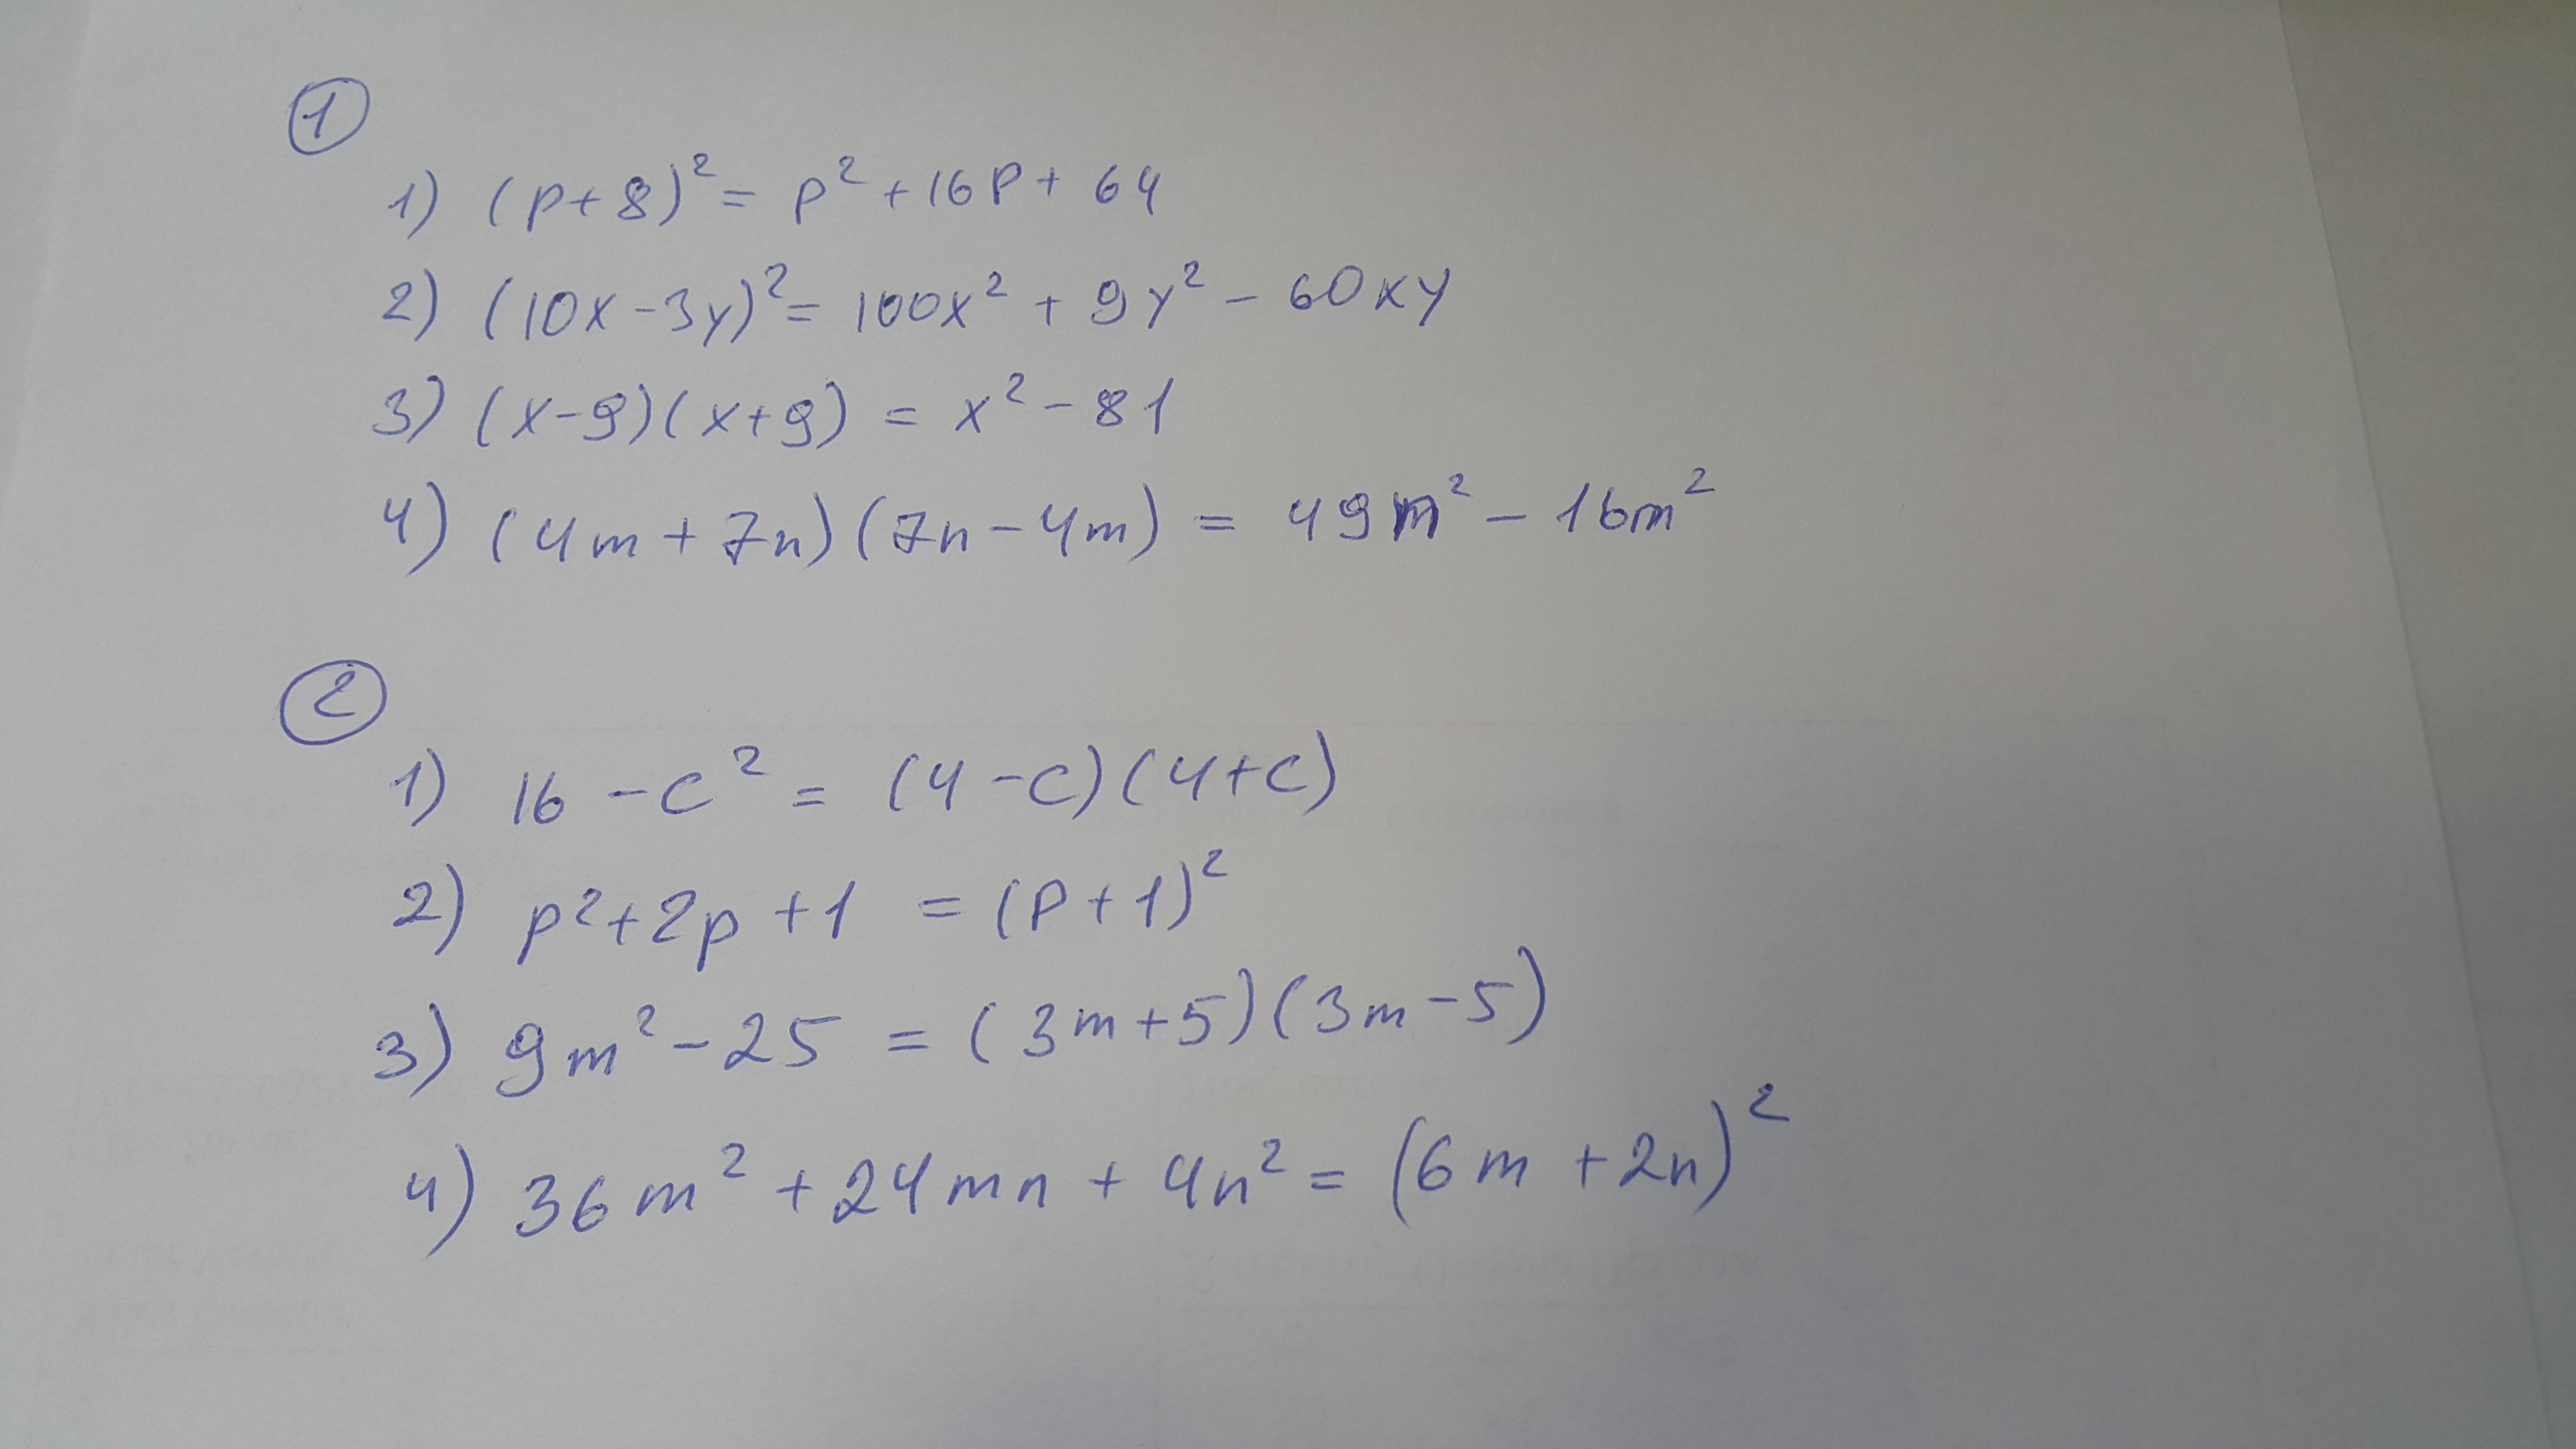 ①
1) (p+8)² = p² + 16p + 64
2) (10x - 3y)² = 100x² + 9y² - 60xy
3) (x-9)(x+9) = x² - 81
4) (4m + 7n)(7n - 4m) = 49n² - 16m²
②
1) 16 - c² = (4 - c)(4+c)
2) p² + 2p + 1 = (p + 1)²
3) 9m² - 25 = (3m+5)(3m-5)
4) 36m² + 24mn + 4n² = (6m + 2n)²